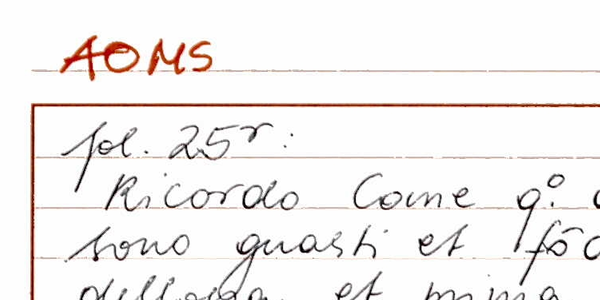 AOMS
fol. 25r:
Ricordo Come qº.
sono guasti et
et prima